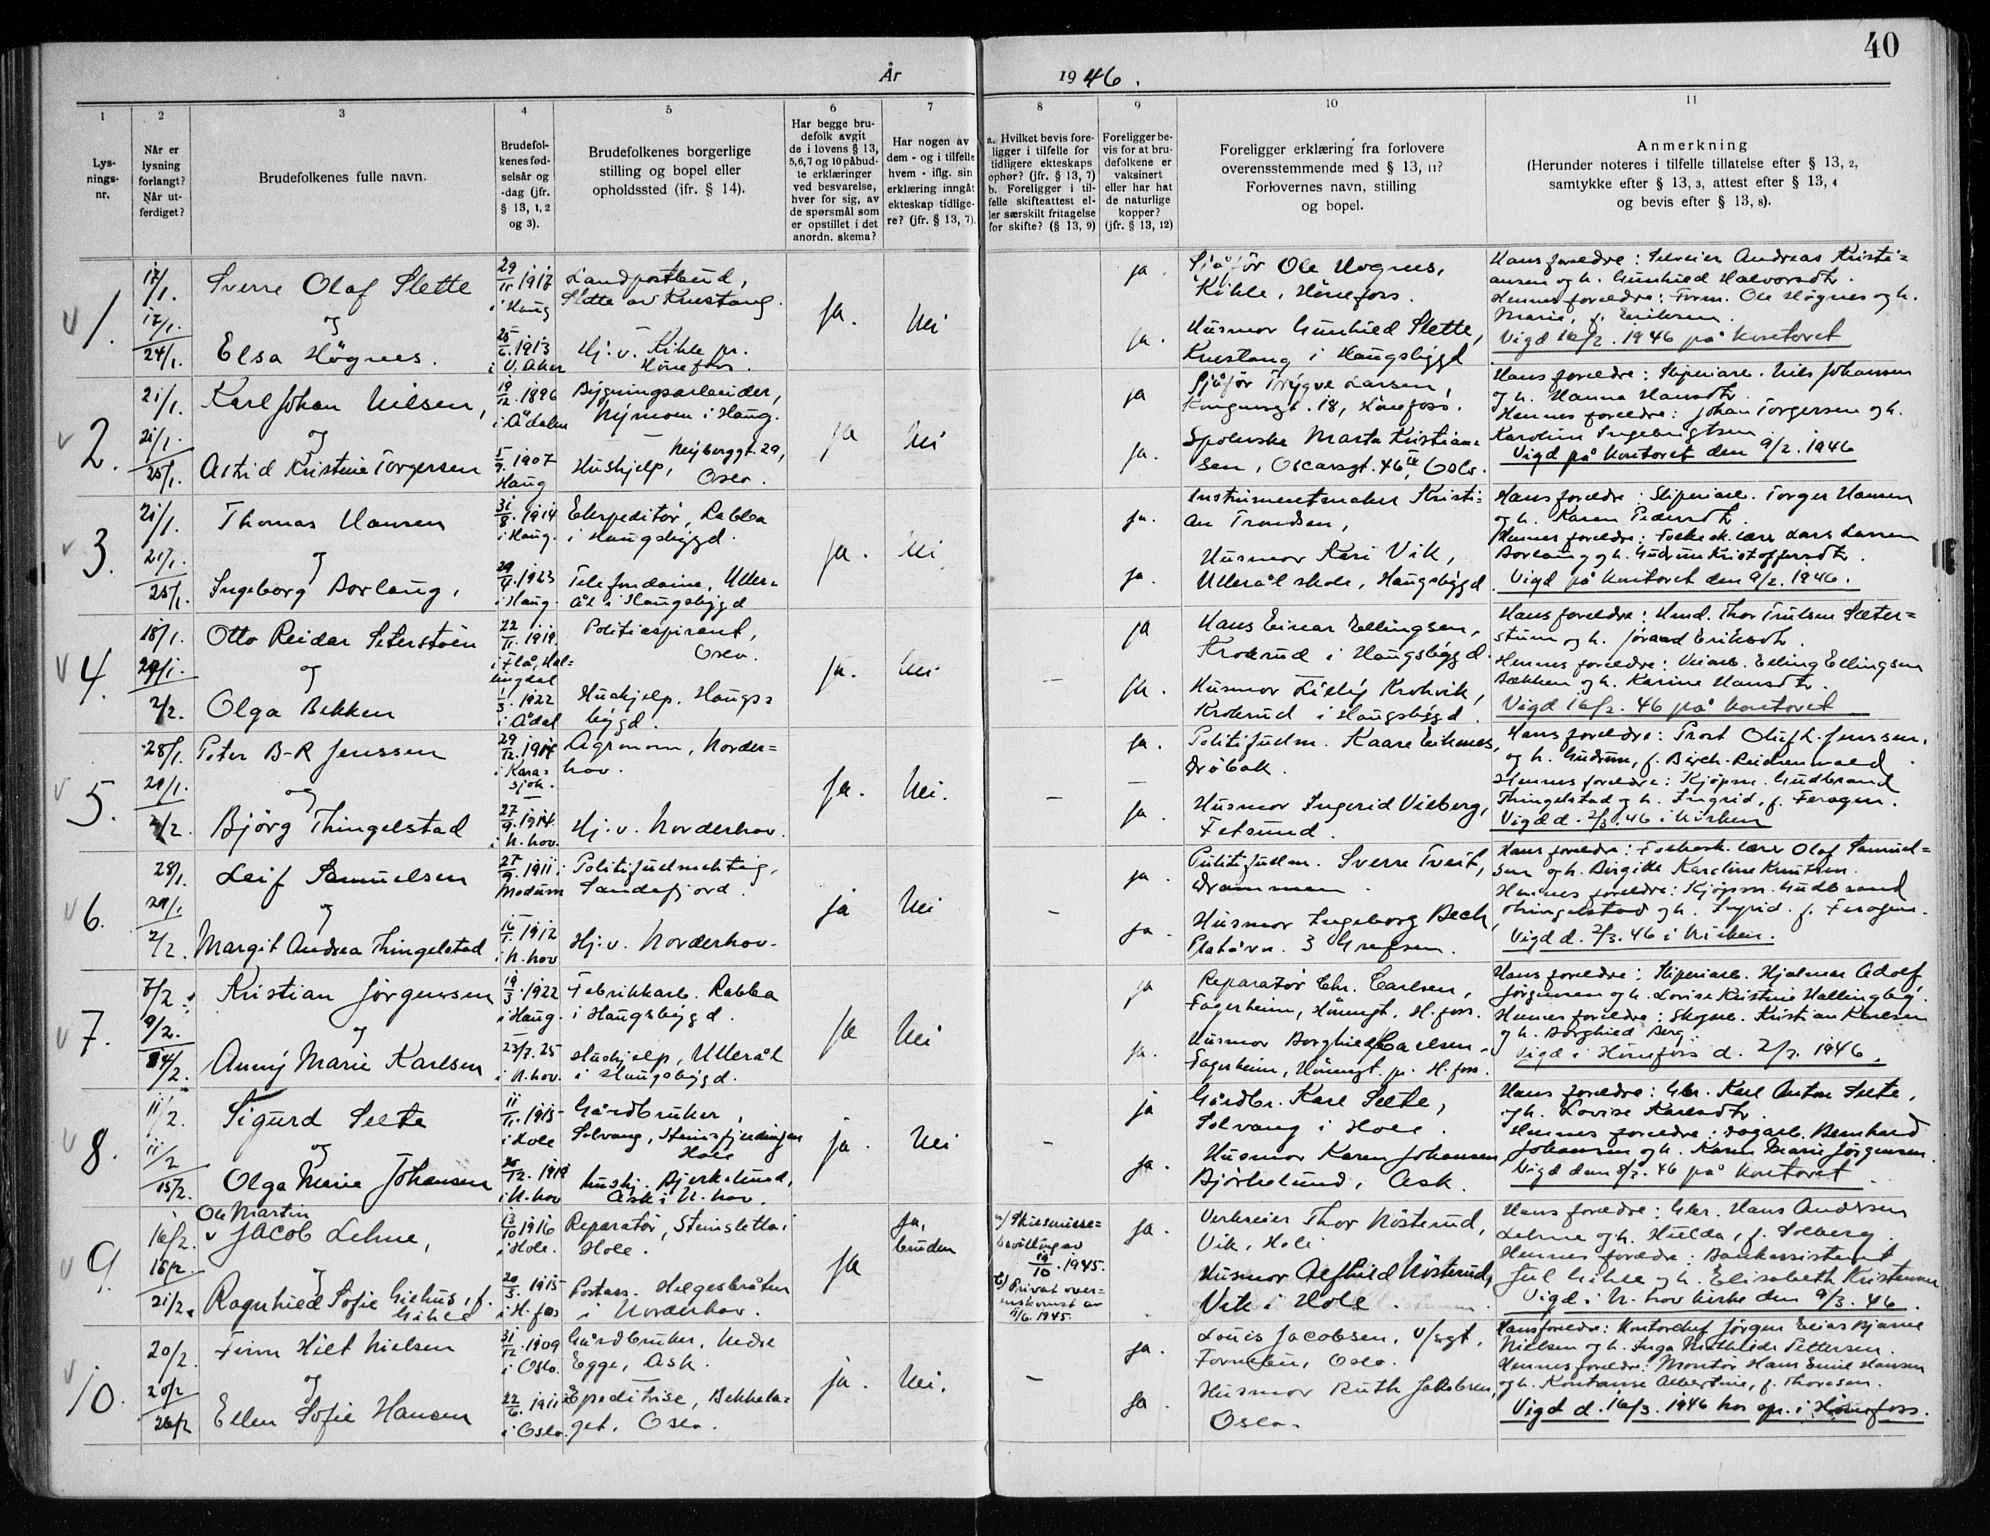 40
År 1946.
1
2
3
4
5
6
7
8
9
10
11
Lys-
nings-
nr.
Når er
lysning
forlangt?
Når ut-
ferdiget?
Brudefolkenes fulle navn.
Brudefol-
kenes fød-
selsår og
-dag (jfr.
§ 13, 1, 2
og 3).
Brudefolkenes borgerlige
stilling og bopel eller
opholdssted (jfr. § 14).
Har begge bru-
defolk avgit
de i lovens § 13,
5,6,7 og 10 påbud-
te erklæringer
ved besvarelse,
hver for sig, av
de spørsmål som
er opstillet i det
anordn. skema?
Har nogen av
dem - og i tilfelle
hvem - iflg. sin
erklæring inngått
ekteskap tidlige-
re? (jfr. § 13, 7).
a. Hvilket bevis fore-
ligger i tilfelle for
tidligere ekteskaps
ophør? (jfr. § 13, 7)
b. Foreligger i til-
felle skifteattest el-
ler særskilt fritagelse
for skifte? (§ 13, 9)
Foreligger be-
vis for at bru-
defolkene er
vaksinert
eller har hat
de naturlige
kopper?
(jfr. § 13, 12)
Foreligger erklæring fra forlovere
overensstemmende med § 13, 11?
Forlovernes navn, stilling
og bopel.
Anmerkning
(Herunder noteres i tilfelle tillatelse efter § 13, 2,
samtykke efter § 13, 3, attest efter § 13, 4
og bevis efter § 13, 8).
1.
17/1.
17/1.
24/1.
Sverre Olaf Slette
og
Elsa Høgnes.
29/11 1917
i Haug
25/6. 1913
i V. Aker
Landpostbud,
Slette av Kvestang.
Hj. v. Kihle pr.
Hønefoss.
Ja.
Nei
ja.
ja.
Sjåfør Ole Høgnes,
Kihle, Hønefoss.
Husmor Gunhild Slette,
Kvestang i Haugsbygd
Hans foreldre: Selveier Andreas Kristi-
ansen og h. Gunhild Halvorsdtr.
Hennes foreldre: Form. Ole Høgnes og h.
Marie, f. Eriksen.
Vigd 16/2. 1946 på kontoret
2.
21/1.
21/1.
25/1.
Karl Johan Nilsen,
og
Astrid Kristine Torgersen
19/12. 1896
i Ådalen
5/9. 1907
Haug
Bygningsarbeider,
Nymoen i Haug.
Hushjelp,
Oslo.
ja
Nei
ja
ja.
Sjåfør Trygve Larsen,
Kongensgt. 18, Hønefoss.
Marta Kristian-
sen, Oscarsgt. 46 Oslo.
Hans foreldre: Sliperiarb. Nils Johansen
og h. Hanna Hansdtr.
Hennes foreldre: Johan Torgersen og h.
Karoline Ingebrigtsen
Vigd på kontoret den 9/2. 1946
3.
21/1.
21/1.
25/1.
Thomas Hansen
og
Ingeborg Borlaug,
31/8. 1914
i Haug.
29/4. 1923
i Haug.
Ekspeditør, Rabba
i Haugsbygd.
Telefondame, Uller-
ål i Haugsbygd
ja.
Nei
ja.
ja.
Instrumentmaker Kristi-
an Trondsen,
Husmor Kari Vik,
Ullerål skole, Haugsbygd.
Hans foreldre: Sliperiarb. Torger Hansen
og h. Karen Pedersdtr.
Hennes foreldre: Folkesk. lærer Lars Larsen
Borlaug og h. Gudrun Kristoffersdtr.
Vigd på kontoret den 9/2. 1946.
4.
18/1.
29/1.
2/2.
Otto Reidar Seterstøen
og
Olga Bekken
22/11. 1919.
i Flå, Hal-
lingdal
1/3. 1922
i Ådal
Politiaspirant,
Oslo.
Hushjelp. Haugs-
bygd.
ja.
Nei
—
ja
ja.
Hans Einar Ellingsen,
Krokrud i Haugsbygd.
Husmor Lilly Krokvik,
Krokrud i Haugsbygd.
Hans foreldre: Thor Trulsen Sæter-
støen og h. Joraand Eriksdtr.
Hennes foreldre: Elling Ellingsen
Bækken og h. Karine Hansdtr.
Vigd 16/2. 46 på kontoret
5.
28/1.
29/1.
2/2.
Peter B-R Jenssen
og
Bjørg Thingelstad
29/12. 1914
i Kara-
sjok.
27/9. 1914.
i N. hov.
Agronom, Norder-
hov.
Hj. v. Norderhov.
Ja.
Nei.
—
ja.
—
ja.
Politifudm. Kaare Eiknes,
Drøbak.
Husmor Ingerid Vieberg,
Fetsund.
Hans foreldre: Prost Oluf L. Jenssen.
og h. Gudrun, f. Birch-Reichenwald.
Hennes foreldre: Kjøpm. Gudbrand
Thingelstad og h. Ingrid, f. Feragen.
Vigd d. 2/3. 46 i kirken
6.
28/1.
29/1.
2/2.
Leif Samuelsen
og
Margit Andrea Thingelstad
27/9. 1911.
Modum
16/1. 1912
i N. hov
Politifudmektig,
Sandefjord.
Hj. v. Norderhov.
ja
Nei
—
ja.
ja.
Politifudm. Sverre Tveit,
Drammen.
Husmor Ingeborg Bech,
Platåvn. 3 Grefsen.
Hans foreldre: Folkesk. lærer Olaf Samuel-
sen og h. Birgitte Karoline Knutsen.
Hennes foreldre: Kjøpm. Gudbrand
Thingelstad og h. Ingrid. f. Feragen.
Vigd d. 2/3. 46 i kirken.
7.
7/2.
9/2.
14/2.
Kristian Jørgensen
og
Anny Marie Karlsen
19/3. 1922
i Haug.
23/7. 25
i N. hov.
Fabrikkarb. Rabba
i Haugsbygd.
Hushjelp, Ullerål
i Haugsbygd.
Ja
Nei
ja
ja.
Reparatør Chr. Carlsen,
Fagerheim, Hønengt. H. foss.
Husmor Borghild Carlsen.
Fagerheim, Hønengt. pr. H. foss.
Hans foreldre: Sliperiarb. Hjalmar Adolf
Jørgensen og h. Lovise Kristine Hallingby.
Hennes foreldre: Skogarb. Kristian Karlsen
og h. Borghild Berg.
Vigd i Hønefoss d. 2/3. 1946.
8.
11/2.
11/2
15/2.
Sigurd Selte
og
Olga Marie Johansen
11/11. 1915
i Hole
1918
i N. hov
Gårdbruker,
Solvang, Steinsfjerdingen
Hole
hushj. Bjerkelund,
Ask i N. hov.
ja.
Nei
—
ja
ja.
Gårdbr. Karl Selte,
Solvang i Hole.
Husmor Karen Johansen
Bjørkelund, Ask.
Hans foreldre: Gbr. Karl Anton Selte,
og h. Lovise Karlsdtr.
Hennes foreldre: dagarb. Bernhard
Johansen og h. Karen Marie Jørgensen.
Vigd den 46 på kontoret.
9.
16/2.
16/2.
21/2.
Ole Martin
Jacob Lehne,
og
Ragnhild Sofie Giehus, f.
Gihle
13/10 1916
i Hole.
20/3. 1915
i H. foss
Reparatør, Steinsletta i
Hole.
Postass. Helgesbråten
i Norderhov.
Ja
Ja,
bruden
a/ Skilsmisse-
bevilling av
19/10. 1945.
b) Privat over-
enskomst av
11/6. 1945.
ja.
Verkseier Thor Nøsterud,
Vik, Hole
Husmor Alfhild Nøsterud,
Vik i Hole.
Hans foreldre: Gbr. Hans Andersen
Lehne og h. Hulda, f. Solberg.
Hennes foreldre: Bankassistent
Jul Gihle og h. Elisabeth Kristensen
Vigd i N. hov kirke den 9/3. 46.
10.
20/2.
20/2
26/2
Finn Hiet Nielsen
og
Ellen Sofie Hansen
31/12. 1909
i Oslo.
22/6. 1911
i Oslo.
Gårdbruker, Nedre
Egge, Ask.
Ekspeditrise, Bekkela-
get, Oslo.
ja.
Nei.
—
ja.
ja.
Louis Jacobsen,
Fornebu, Oslo.
Husmor Ruth Jakobsen,
Oslo.
Hans foreldre: Kontorchef Jørgen Elias Bjarne
Nielsen og h. Inga Mathilde Pettersen.
Hennes foreldre: Montør Hans Emil Hansen
og h. Konstanse Albertine, f. Thoresen.
Vigd d. 16/3. 1946 hos spr. i Hønefoss.